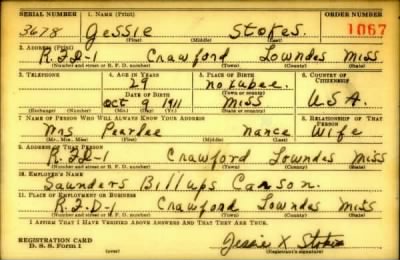 SERIAL NUMBER 1. NAME (Print) ORDER NUMBER
3678 Jessie Stokes. 1067
(First) (Middle) (Last)
2. ADDRESS (Print)
R.F.D-1 Crawford Lowndes Miss
(Number and street or R. F. D. number) (Town) (County) (State)
3. TELEPHONE 4. AGE IN YEARS 5. PLACE OF BIRTH 6. COUNTRY OF CITIZENSHIP
29 Noxubee.
DATE OF BIRTH (Town or county)
Oct 9 1911 Miss U.S.A.
(Exchange) (Number) (Mo.) (Day) (Yr.) (State or country)
7. NAME OF PERSON WHO WILL ALWAYS KNOW YOUR ADDRESS 8. RELATIONSHIP OF THAT PERSON
Mrs Pearlee Nance Wife
(Mr., Mrs., Miss) (First) (Middle) (Last)
9. ADDRESS OF THAT PERSON
R.F.D-1 Crawford Lowndes Miss
(Number and street or R. F. D. number) (Town) (County) (State)
10. EMPLOYER'S NAME
Saunders Billups Carson.
11. PLACE OF EMPLOYMENT OR BUSINESS
R.F.D-1 Crawford Lowndes Miss
(Number and street or R. F. D. number) (Town) (County) (State)
I AFFIRM THAT I HAVE VERIFIED ABOVE ANSWERS AND THAT THEY ARE TRUE.
REGISTRATION CARD
D. S. S. Form 1 Jessie X Stokes
(Registrant's signature)